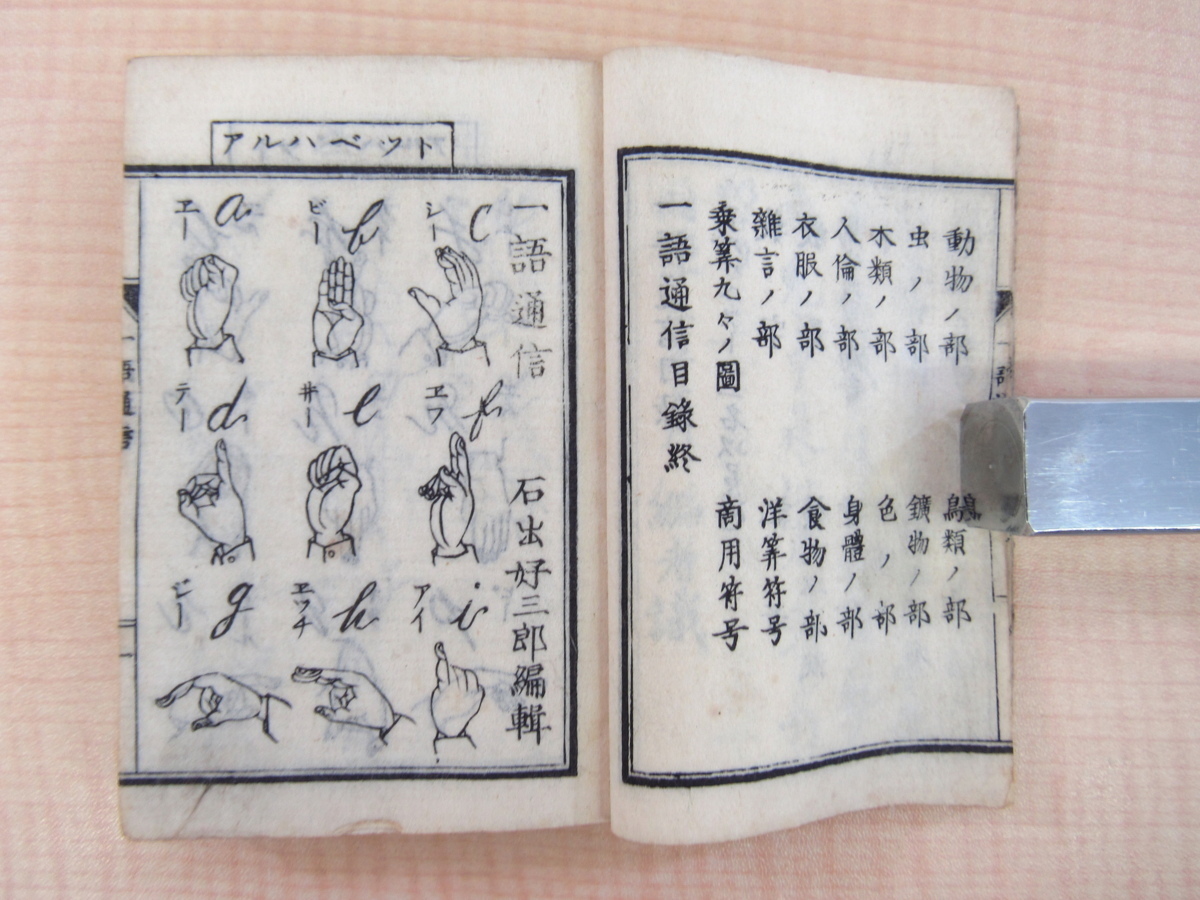 動物ノ部　鳥類ノ部
虫ノ部　鑛物ノ部
木類ノ部　色ノ部
人倫ノ部　身體ノ部
衣服ノ部　食物ノ部
雜言ノ部　洋筭符号
乗筭九々ノ圖　商用符号
一語通信目錄終
アルハベット
一語通信　石出好三郎編輯
a ヱー
b ビー
c シー
d テー
e 井ー
f ヱフ
g ジー
h ヱッチ
i アイ